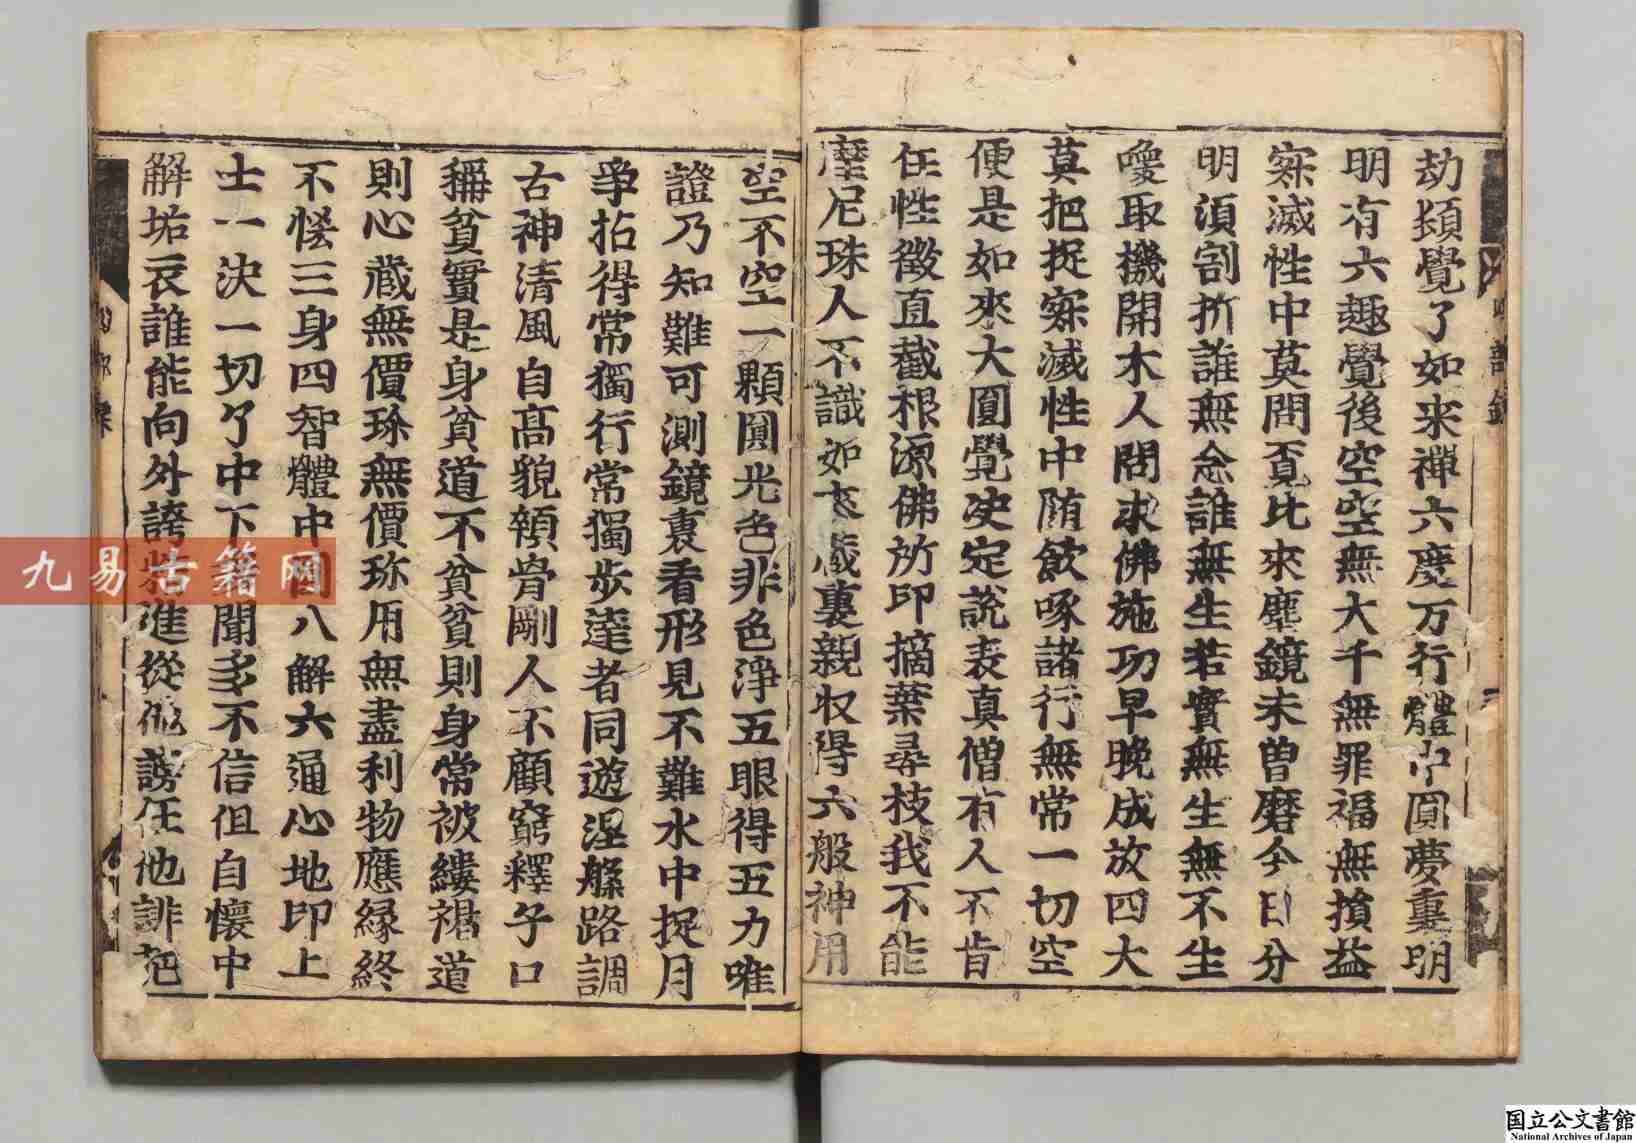 劫頓覺了如来禪六度万行體中圓夢裏明
明有六趣覺後空空無大千無罪福無損益
寂滅性中莫問覓比來塵鏡未曽磨今日分
明須剖折誰無念誰無生若實無生無不生
喚取機関木人問求佛施功早晚成放四大
莫把捉寂滅性中随飲啄諸行無常一切空
便是如來大圓覺决定說表真僧有人不肯
任性徵直截根源佛所印摘葉尋枝我不能
摩尼珠人不識如来藏裏親収得六般神用
空不空一顆圓光色非色淨五眼得五力唯
證乃知難可測鏡裏看形見不難水中捉月
爭拈得常獨行常獨步達者同遊涅槃路調
古神清風自高貌顇骨剛人不顧窮釋子口
稱貧實是身貧道不貧貧則身常被縷褐道
則心藏無價珎無價珎用無盡利物應緣終
不悋三身四智體中圓八解六通心地印上
士一決一切了中下聞多不信但自懷中
解垢衣誰能向外誇精進從他謗任他誹把
九易古籍网
国立公文書館
National Archives of Japan